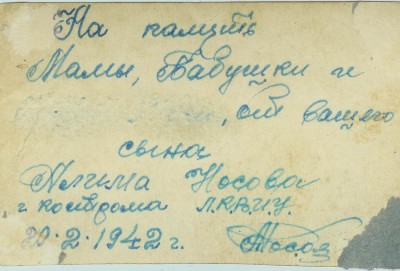 На память
Мамы, Бабушки и
, от вашего
сына
Алима Носова
г Кострома Л.К.В.И.У.
20·2·1942 г. Носов